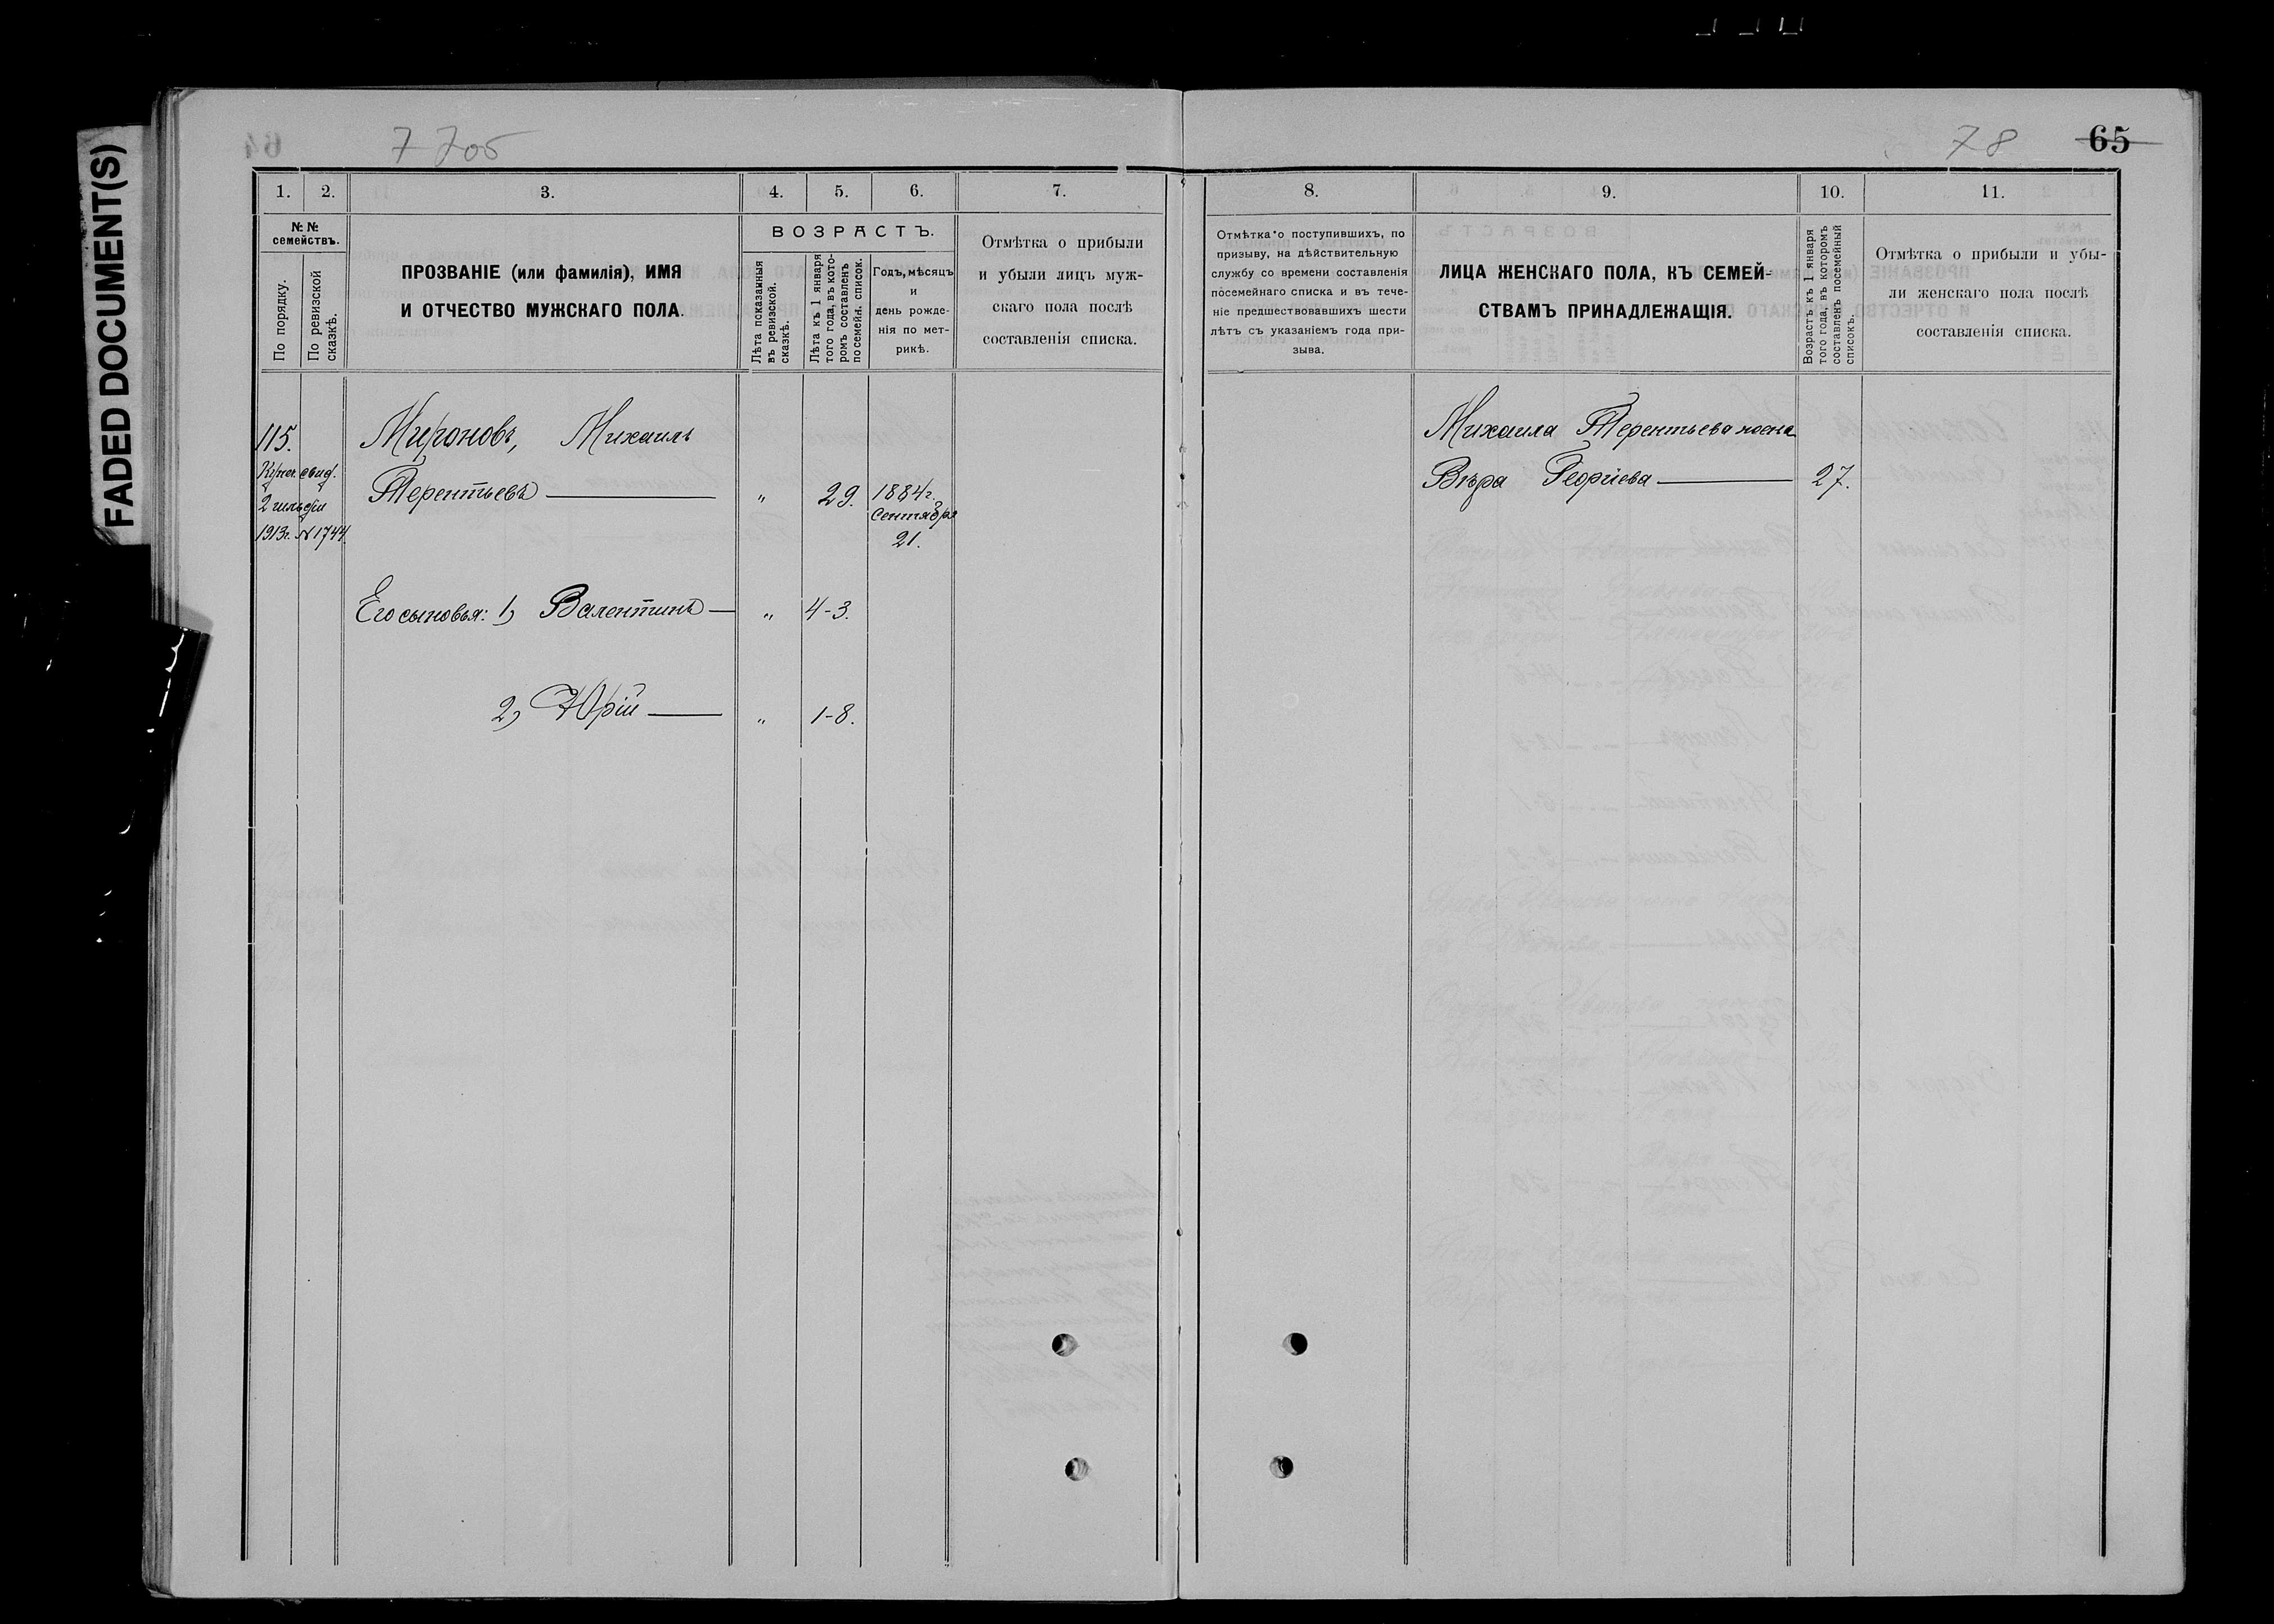 FADED DOCUMENT(S)
77об
78
65
1.
2.
3.
4.
5.
6.
7.
№№
семействъ.
По порядку.
По ревизской
сказкѣ.
ПРОЗВАНІЕ (или фамилія), ИМЯ
И ОТЧЕСТВО МУЖСКАГО ПОЛА.
ВОЗРАСТЪ.
Лѣта показанныя
въ ревизской.
сказкѣ.
Лѣта къ 1 января
того года, въ кото-
ромъ составленъ
посемейн. список.
Годъ, мѣсяцъ
и
день рожде-
нія по мет-
рикѣ.
Отмѣтка о прибыли
и убыли лицъ муж-
скаго пола послѣ
составленія списка.
115.
Купеч. свид.
2 гильдіи
1913г. №1744.
Мироновъ, Михаилъ
Терентьевъ
"
29.
1884г.
Сентября
21.
Его сыновья: 1) Валентинъ
"
4-3.
2) Юрій
"
1-8.
8.
9.
10.
11.
Отмѣтка о поступившихъ, по
призыву, на дѣйствительную
службу со времени составленія
посемейнаго списка и въ тече-
ніе предшествовавшихъ шести
лѣтъ съ указаніемъ года при-
зыва.
ЛИЦА ЖЕНСКАГО ПОЛА, КЪ СЕМЕЙ-
СТВАМЪ ПРИНАДЛЕЖАЩІЯ.
Возрастъ къ 1 января
того года, въ которомъ
составленъ посемейный
списокъ.
Отмѣтка о прибыли и убы-
ли женскаго пола послѣ
составленія списка.
Михаила Терентьева жена
Вѣра Георгіева
27.